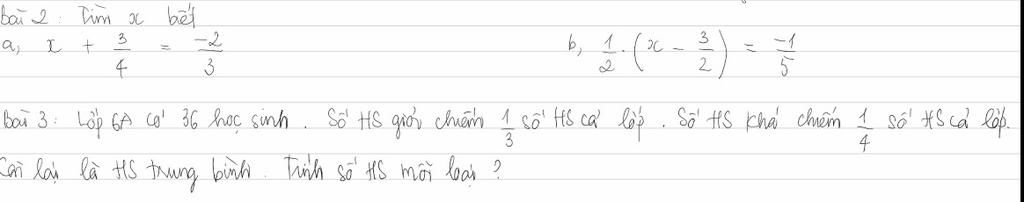 Bài 2: Tìm x bết
a, x + 3/4 = -2/3 b, 1/2 . (x - 3/2) = -1/5
Bài 3: Lớp 6A có 36 học sinh. Số HS giỏi chiếm 1/3 số HS cả lớp. Số HS khá chiếm 1/4 số HS cả lớp.
Còn lại là HS trung bình. Tính số HS mỗi loại?